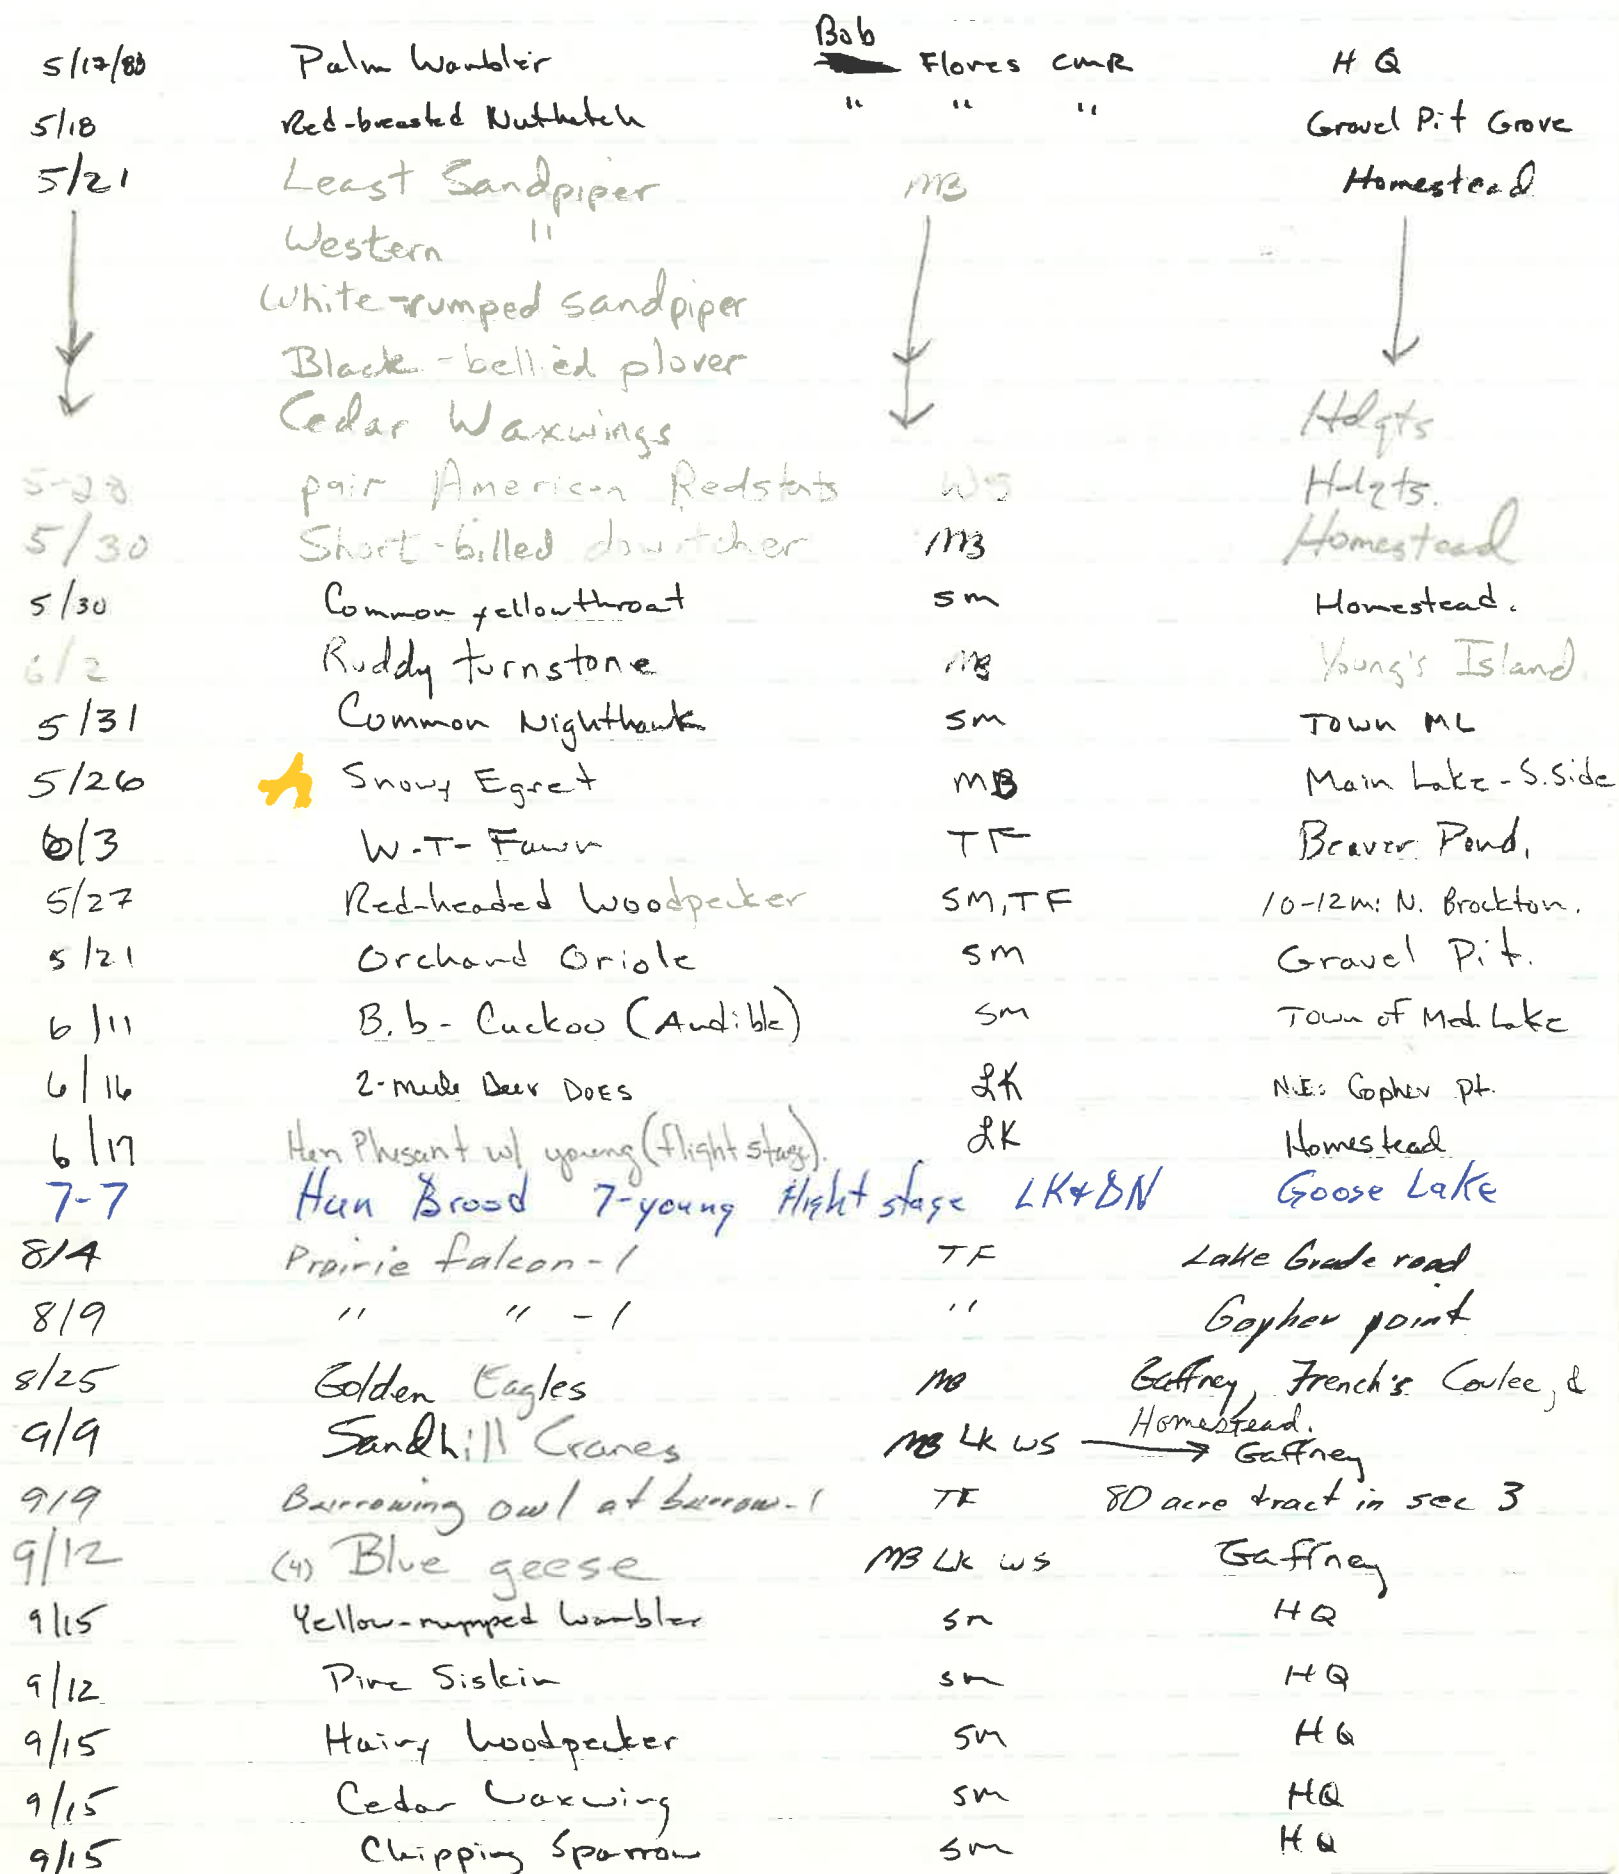 Bob
5/17/88 Palm Warbler Flores CMR HQ
5/18 Red-breasted Nuthatch " " " Gravel Pit Grove
5/21 Least Sandpiper MB Homestead
Western "
White-rumped sandpiper
Black-bellied plover
Cedar Waxwings Hdqts
5-28 pair American Redstarts WS Hdqts.
5/30 Short-billed dowitcher MB Homestead
5/30 Common yellowthroat SM Homestead.
6/2 Ruddy turnstone MB Young's Island
5/31 Common Nighthawk SM Town ML
5/26 Snowy Egret MB Main Lake - S. Side
6/3 W-T- Fawn TF Beaver Pond.
5/27 Red-headed Woodpecker SM, TF 10-12 mi N. Brockton.
5/21 Orchard Oriole SM Gravel Pit.
6/11 B.b- Cuckoo (Audible) SM Town of Med. Lake
6/16 2-Mule Deer DOES LK N.E. Gopher pt.
6/17 Hen Phesant w/ young (flight stage). LK Homestead
7-7 Hun Brood 7-young flight stage LK+DN Goose Lake
8/4 Prairie falcon - 1 TF Lake Grade road
8/9 " " - 1 " Gopher point
8/25 Golden Eagles MB Gaffney, French's Coulee, &
Homestead.
9/9 Sandhill Cranes MB LK WS → Gaffney
9/9 Burrowing owl at burrow-1 TF 80 acre tract in sec 3
9/12 (4) Blue geese MB LK WS Gaffney
9/15 Yellow-rumped Warbler SM HQ
9/12 Pine Siskin SM HQ
9/15 Hairy Woodpecker SM HQ
9/15 Cedar Waxwing SM HQ
9/15 Chipping Sparrow SM HQ